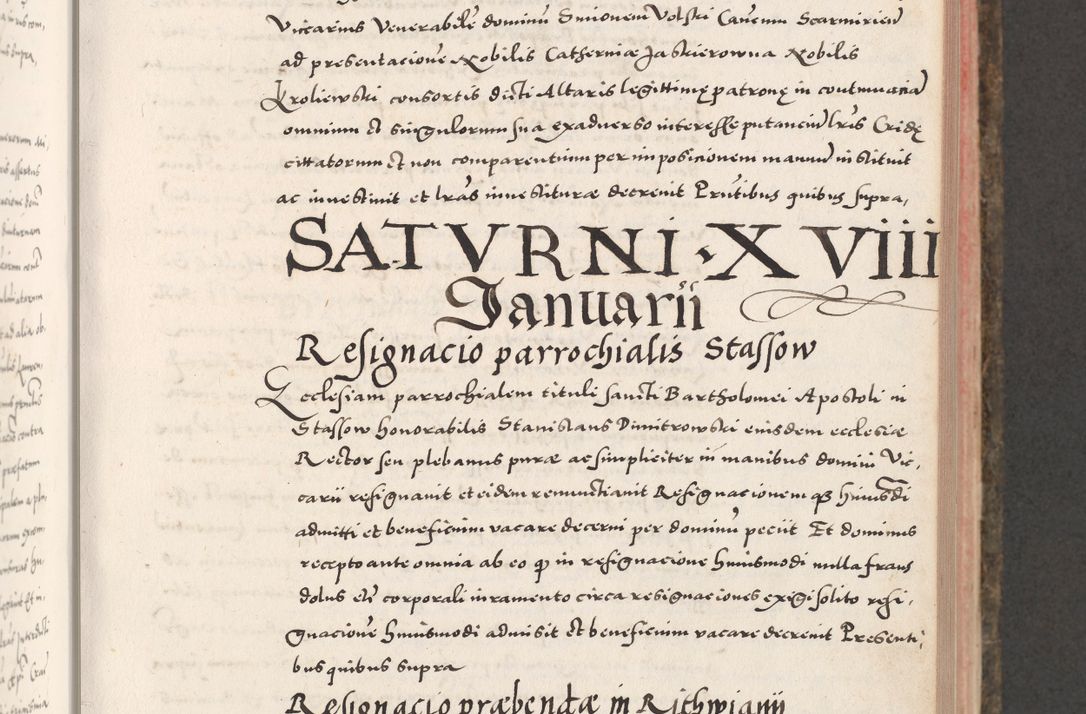 Vicarius Venerabilē dominū Simonem Volski Canēm Scarmirien̄
ad presentacionē Nobilis Catherniæ Jaskierowna Nobilis
Kroliewski consortis dicti Altaris legittimę patronę in contumacia͞
omnium et singulorum sua exadverso interesse putanciū lrīs Cridę
cittatorum et non comparentium per imposicionem manuū instituit
ac investivit et lrās investituræ decrevit Prn̄tibus quibus supra,
SATVRNI · XVIII
Januarii
Resignacio parrochialis Stassow
Ecclesiam parrochialem tituli sancti Bartholomei Apostoli in
Stassow honorabilis Stanislaus Dmitrowski eiusdem ecclesiæ
Rector seu plebanus puræ ac simpliciter in manibus domini Vic,
carii resignavit et eidem renunctiavit Resignacionem qȝ hmōi
admitti et beneficium vacare decerni per dominū peciit Et dominus
recepto ante omnia ab eo ꝙ in resignacione huiusmodi nulla fraus
dolus etc̄ corporali iuramento circa resignaciones exigi solito resi,
gnacionē huiusmodi admisit et beneficium vacare decrevit Presenti,
bus quibus supra
Resignacio præbendæ in Rithwianij